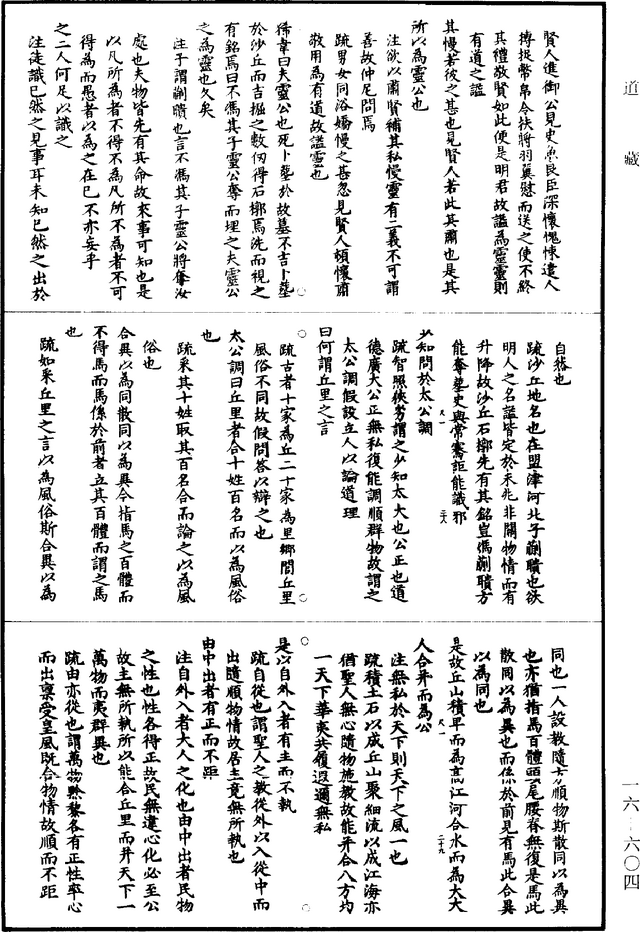 道藏
賢人進御公見史魚良臣深懷愧悚遣人
搏捉幣帛令扶將羽翼慰而送之使不終
其禮敬賢如此便是明君故謚為靈靈則
有道之謚
其慢若彼之甚也見賢人若此其肅也是其
所以為靈公也
注欲以肅賢補其私慢靈有二義不可謂
善故仲尼問焉
疏男女同浴媟慢之甚忽見賢人頓懷肅
敬用為有道故謚靈也
狶韋曰夫靈公也死卜葬於故墓不吉卜葬
於沙丘而吉掘之數仞得石槨焉洗而視之
有銘焉曰不馮其子靈公奪而埋之夫靈公
之為靈也久矣
注子謂蒯聵也言不馮其子靈公將奪汝
處也夫物皆先有其命故來事可知也是
以凡所為者不得不為凡所不為者不可
得為而愚者以為之在己不亦妄乎
之二人何足以識之
注徒識已然之見事耳未知已然之出於
自然也
疏沙丘地名也在盟津河北子蒯聵也欲
明人之名謚皆定於未兆非關物情而有
升降故沙丘石槨先有其銘豈馮蒯聵方
能奪葬史與常騫詎能識邪
少知問於太公調
疏智照狹劣謂之少知太大也公正也道
德廣大公正無私復能調順群物故謂之
太公調假設二人以論道理
曰何謂丘里之言
疏古者十家為丘二十家為里鄉閭丘里
風俗不同故假問答以辯之也
太公調曰丘里者合十姓百名而以為風俗
也
疏采其十姓取其百名合而論之以為風
俗也
合異以為同散同以為異今指馬之百體而
不得馬而馬係於前者立其百體而謂之馬
也
疏如采丘里之言以為風俗斯合異以為
同也一人設教隨方順物斯散同以為異
也亦猶指馬百體頭尾腰脊無復是馬此
散同以為異也而係於前見有馬此合異
以為同也
是故丘山積卑而為高江河合水而為大大
人合并而為公
注無私於天下則天下之風一也
疏積土石以成丘山聚細流以成江海亦
猶聖人無心隨物施教故能并合八方均
一天下華夷共履遐邇無私
是以自外入者有主而不執
疏自從也謂聖人之教從外以入從中而
出隨順物情故居主竟無所執也
由中出者有正而不距
注自外入者大人之化也由中出者民物
之性也性各得正故民無違心化必至公
故主無所執所以能合丘里而并天下一
萬物而夷群異也
疏由亦從也謂萬物黔黎各有正性率心
而出稟受皇風既合物情故順而不距
一六—六〇四